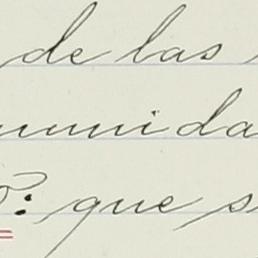 de las
munida
: que s